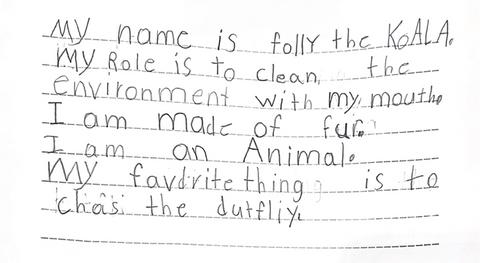 My name is folly the KOALA.
My Role is to clean, the
environment with my mouth.
I am made of fur.
I am an Animal.
My favdrite thing is to
chas the dutfliy.